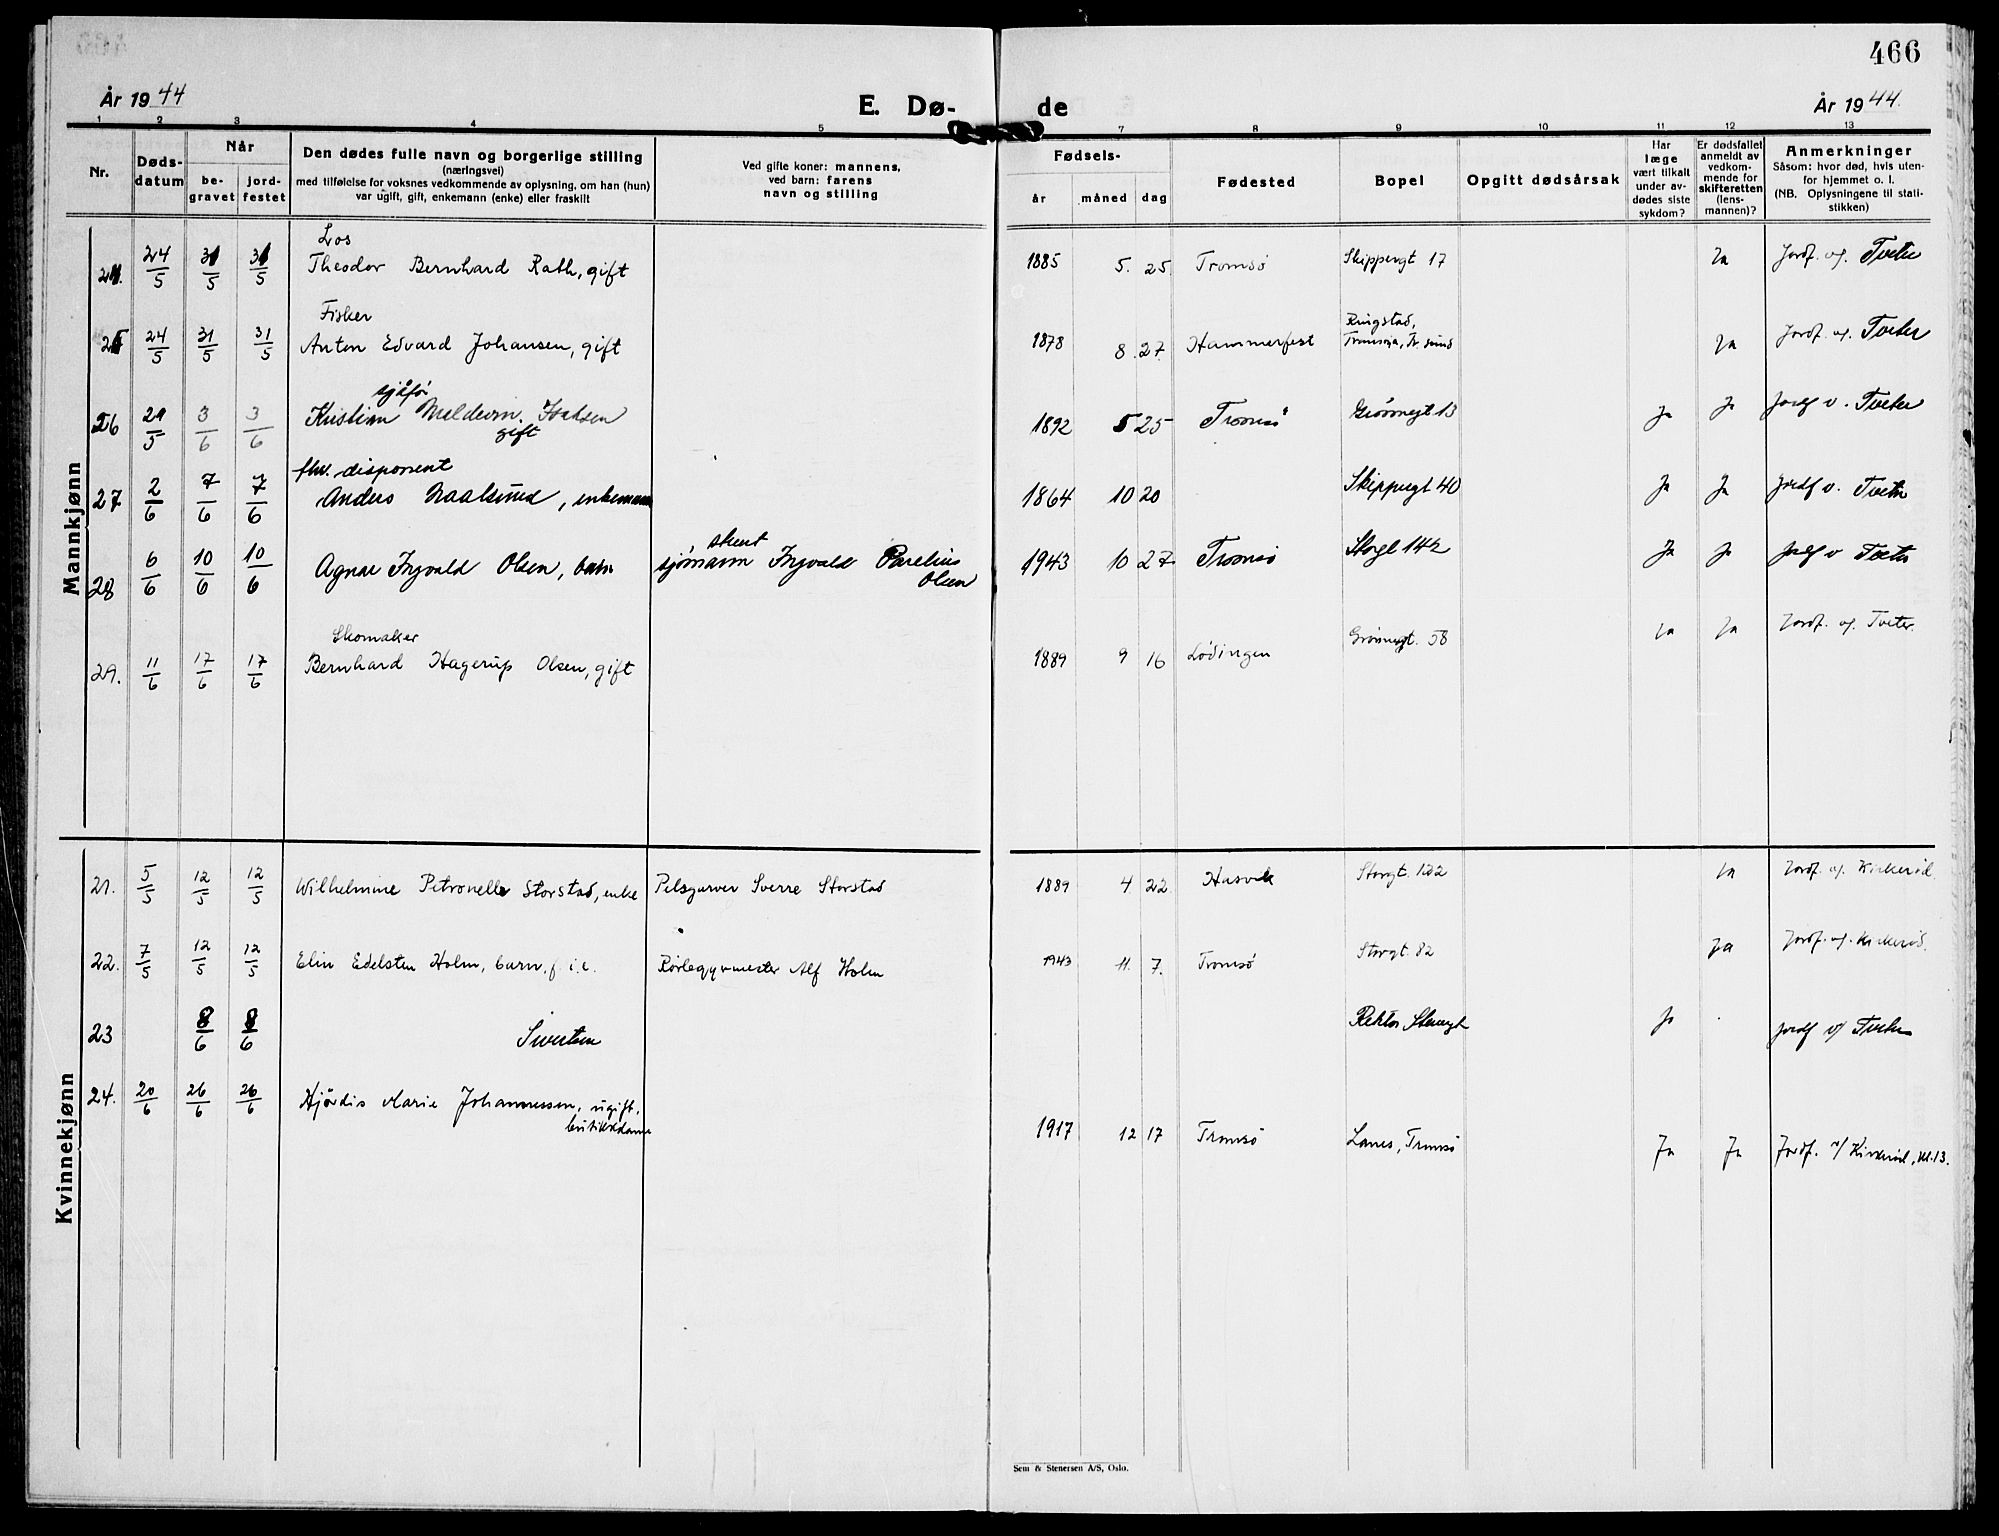 466
År 1944
E. Dø-
de
År 1944.
1 2 3 4 5 7 8 9 10 11 12 13
Nr.
Døds-
datum
Når
be-
gravet
jord-
festet
Den dødes fulle navn og borgerlige stilling
(næringsvei)
med tilføielse for voksnes vedkommende av oplysning, om han (hun)
var ugift, gift, enkemann (enke) eller fraskilt
Ved gifte koner: mannens,
ved barn: farens
navn og stilling
Fødsels-
år måned dag
Fødested
Bopel
Opgitt dødsårsak
Har
læge
vært tilkalt
under av-
dødes siste
sykdom?
Er dødsfallet
anmeldt av
vedkom-
mende for
skifteretten
(lens-
mannen)?
Anmerkninger
Såsom: hvor død, hvis uten-
for hjemmet o. l.
(NB. Oplysningene til stati-
stikken)
Mannkjønn
Los
24. 24/5 31/5 31/5 Theodor Bernhard Rath, gift 1885 5. 25. Tromsø Skippergt 17 Ja Jordf. af. Tveter
Fisker
25 24/5 31/5 31/5 Anton Edvard Johansen, gift 1878 8. 27. Hammerfest Ringstad,
Tromsøia, Tr. sund Ja Jordf. af. Tveter
sjåfør
26 29/5 3/6 3/6 Kristian Isaksen
gift 1892 5 25 Tromsø Grønnegt 13 Ja Ja Jordf v. Tveter
fhv. disponent
27 2/6 7/6 7/6 Anders Naalsund, enkemann 1864 10 20 Skippergt 40 Ja Ja Jordf v. Tveter
28 6/6 10/6 10/6 Agnar Ingvald Olsen, barn sjømann Ingvald Parelius
Olsen 1943 10 27 Tromsø Storgt 142 Ja Ja Jordf v Tveter
Skomaker
29. 11/6 17/6 17/6 Bernhard Hagerup Olsen, gift 1889 9 16 Lødingen Grønnegt. 58 Ja Ja Jordf. af. Tveter.
Kvinnekjønn
21. 5/5 12/5 12/5 Wilhelmine Petronelle Storstad, enke Pelsgarver Sverre Storstad 1889 4 22. Hasvik Storgt. 122 Ja Jordf. af. Kirkerød.
22. 7/5 12/5 12/5 Elin Edelsten Holm, barn, f. i. e. Rørleggermester Alf Holm 1943 11. 7. Tromsø Storgt. 82 Ja Jordf. af. Kirkerød.
23 8/6 8/6 Sivertsen Rektor Steengt Ja Jordf v/ Tveter
24. 20/6 26/6 26/6 Hjørdis Marie Johannessen, ugift,
butikkdame 1917 12 17 Tromsø Lanes, Tromsø Ja Ja Jordf. v/ Kirkerød, kl. 13.
Sem & Stenersen A/S, Oslo.